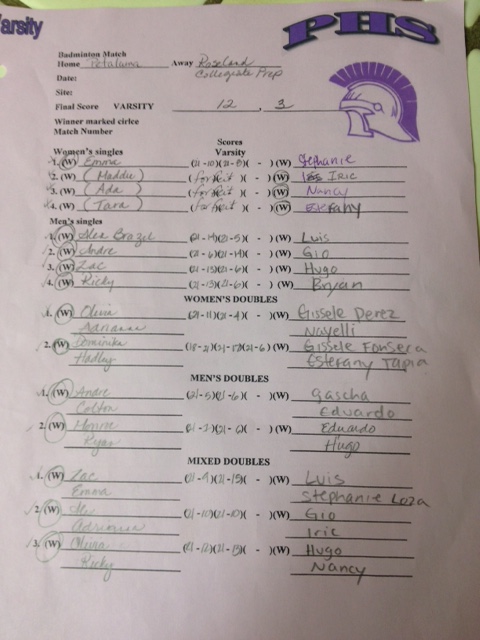 arsity
PHS
Badminton Match
Home Petaluma Away Roseland
Collegiate Prep
Date:
Site:
Final Score VARSITY 12 , 3
Winner marked cirlce
Match Number
Scores
Women's singles Varsity
1. (W) Emma (21-10)(21-8)( - )(W) Stephanie
2. (W) (Maddie) (forfeit)( - )(W) Iric
3. (W) (Ada) (forfeit)( - )(W) Nancy
4. (W) (Tara) (forfeit)( - )(W) Estefany
Men's singles
1. (W) Alex Brazil (21-14)(21-5)( - )(W) Luis
2. (W) Andre (21-6)(21-14)( - )(W) Gio
3. (W) Zac (21-15)(21-6)( - )(W) Hugo
4. (W) Ricky (21-15)(21-6)( - )(W) Bryan
WOMEN'S DOUBLES
1. (W) Olivia (21-11)(21-4)( - )(W) Gissele Perez
Nayelli
2. (W) Dominika (18-21)(21-17)(21-6)(W) Gissele Fonseca
Hadley Estefany Tapia
MEN'S DOUBLES
1. (W) Andre (21-5)(21-6)( - )(W) Gascha
Colton Eduardo
2. (W) (21-)(21-6)( - )(W) Eduardo
Ryan Hugo
MIXED DOUBLES
1. (W) Zac (21-9)(21-15)( - )(W) Luis
Emma Stephanie Loza
2. (W) (21-10)(21-10)( - )(W) Gio
Iric
3. (W) Olivia (21-12)(21-13)( - )(W) Hugo
Ricky Nancy